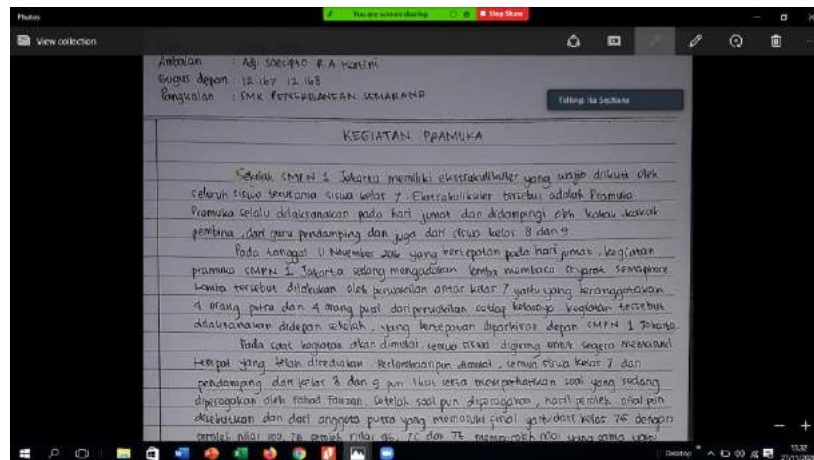 Photos
You are screen sharing
Stop Share
View collection
Ambalan : Adj. Soecipto R.A Kartini
Gugus depan : 12.167 12.168
Pangkalan : SMK PENERBANGAN SEMARANG
Talking: Ika Septiana
KEGIATAN PRAMUKA
Sekolah SMPN 1 Jakarta memiliki ekstrakulikuler yang wajib diikuti oleh
seluruh siswa terutama siswa kelas 7. Ekstrakulikuler tersebut adalah Pramuka
Pramuka selalu dilaksanakan pada hari jumat dan didampingi oleh kakak-kakak
pembina, dari guru pendamping dan juga dari siswa kelas 8 dan 9.
Pada tanggal 11 November 2016 yang bertepatan pada hari jumat, kegiatan
pramuka SMPN 1 Jakarta sedang mengadakan lomba membaca isyarat semaphore.
Lomba tersebut dilakukan oleh perwakilan antar kelas 7 yaitu yang beranggotakan
4 orang putra dan 4 orang putri dari perwakilan setiap kelasnya kegiatan tersebut
dilaksanakan didepan sekolah, yang bertepatan diparkiran depan SMPN 1 Jakarta.
Pada saat kegiatan akan dimulai, semua siswa digiring untuk segera memasuki
tempat yang telah disediakan. Perlombaan pun dimulai, semua siswa kelas 7 dan
pendamping dari kelas 8 dan 9 pun ikut serta memperhatikan soal yang sedang
diperagakan oleh Fahad Fauzan. Setelah soal pun diperagakan, hasil peroleh nilai pun
disebutkan dan dari anggota putra yang memasuki final yaitu dari kelas 7G dengan
peroleh nilai 100, 7B peroleh nilai 96, 7C dan 7E memperoleh nilai yang sama yaitu
Desktop
15.32
27/11/2020